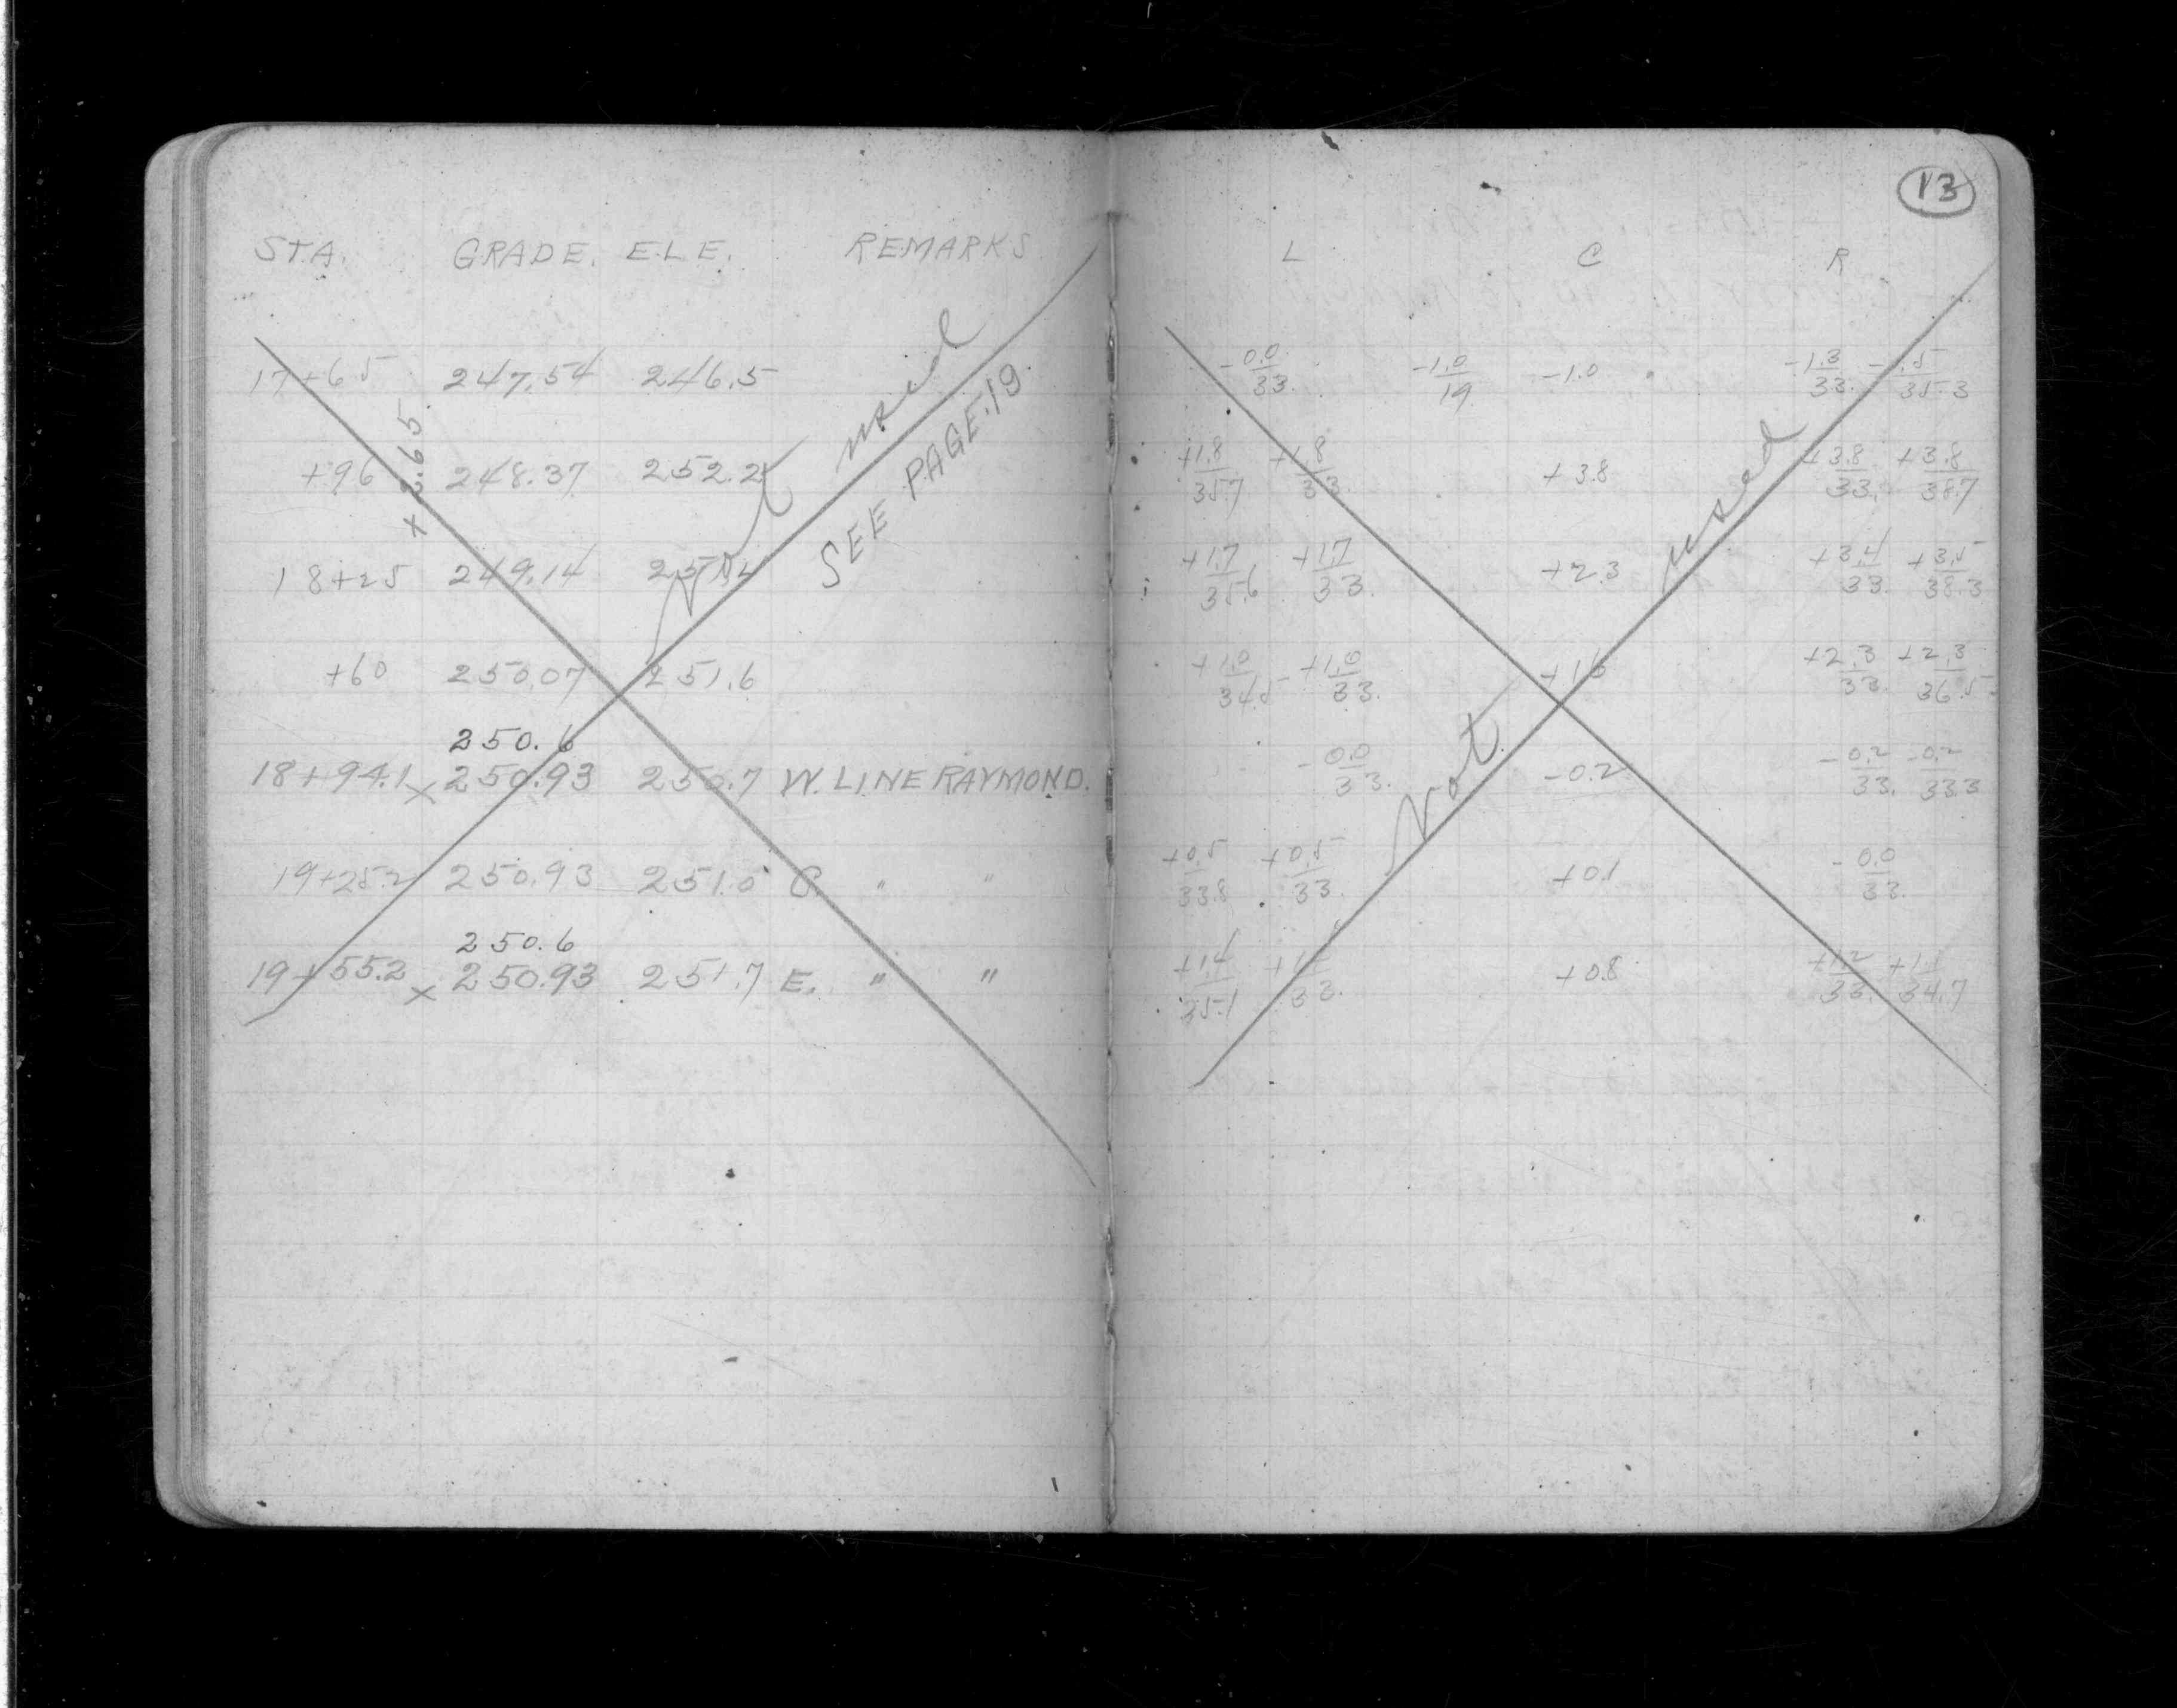 STA. GRADE. ELE. REMARKS
17+65 247.54 246.5
+96 248.37 252.2
+2.65
18+25 249.14
+60 250.07 251.6
250.6
18+94.1 x 250.93 250.7 W. LINE RAYMOND.
19+25.2 250.93 251.0 C. " "
250.6
19+55.2 x 250.93 251.7 E. " "
Not used
SEE PAGE 19.
13
L C R
-0.0/33. -1.0/19 -1.0 -1.3/33. /35.3
+1.8/35.7 +1.8/33. +3.8 +3.8/33. +3.8/38.7
+1.7/35.6 +1.7/33. +2.3 +3.4/33. +3.5/38.3
+1.0/34.5 +1.0/33. +1.6 +2.3/33. +2.3/36.5
-0.0/33. -0.2 -0.2/33. -0.2/33.3
+0.5/33.8 +0.5/33. +0.1 -0.0/33.
+1.4/35.1 /33. +0.8 +1.2/33. +1.1/34.7
Not used